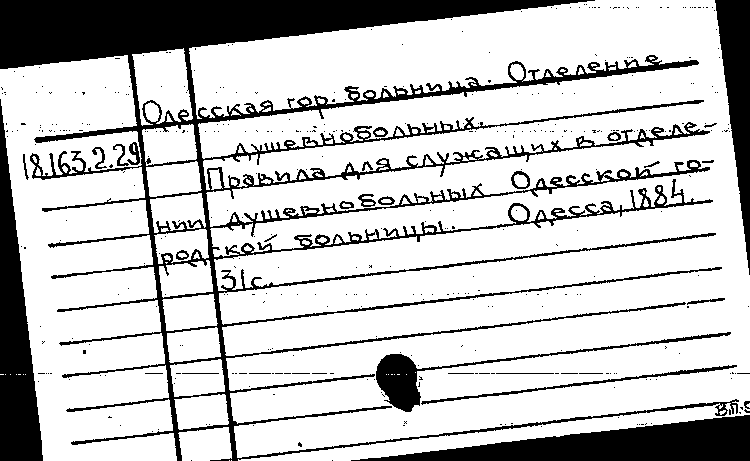 Одесская гор. больница. Отделение
18.163.2.29. душевнобольных.
Правила для служащих в отделе-
нии душевнобольных Одесской го-
родской больницы. Одесса, 1884.
31с.